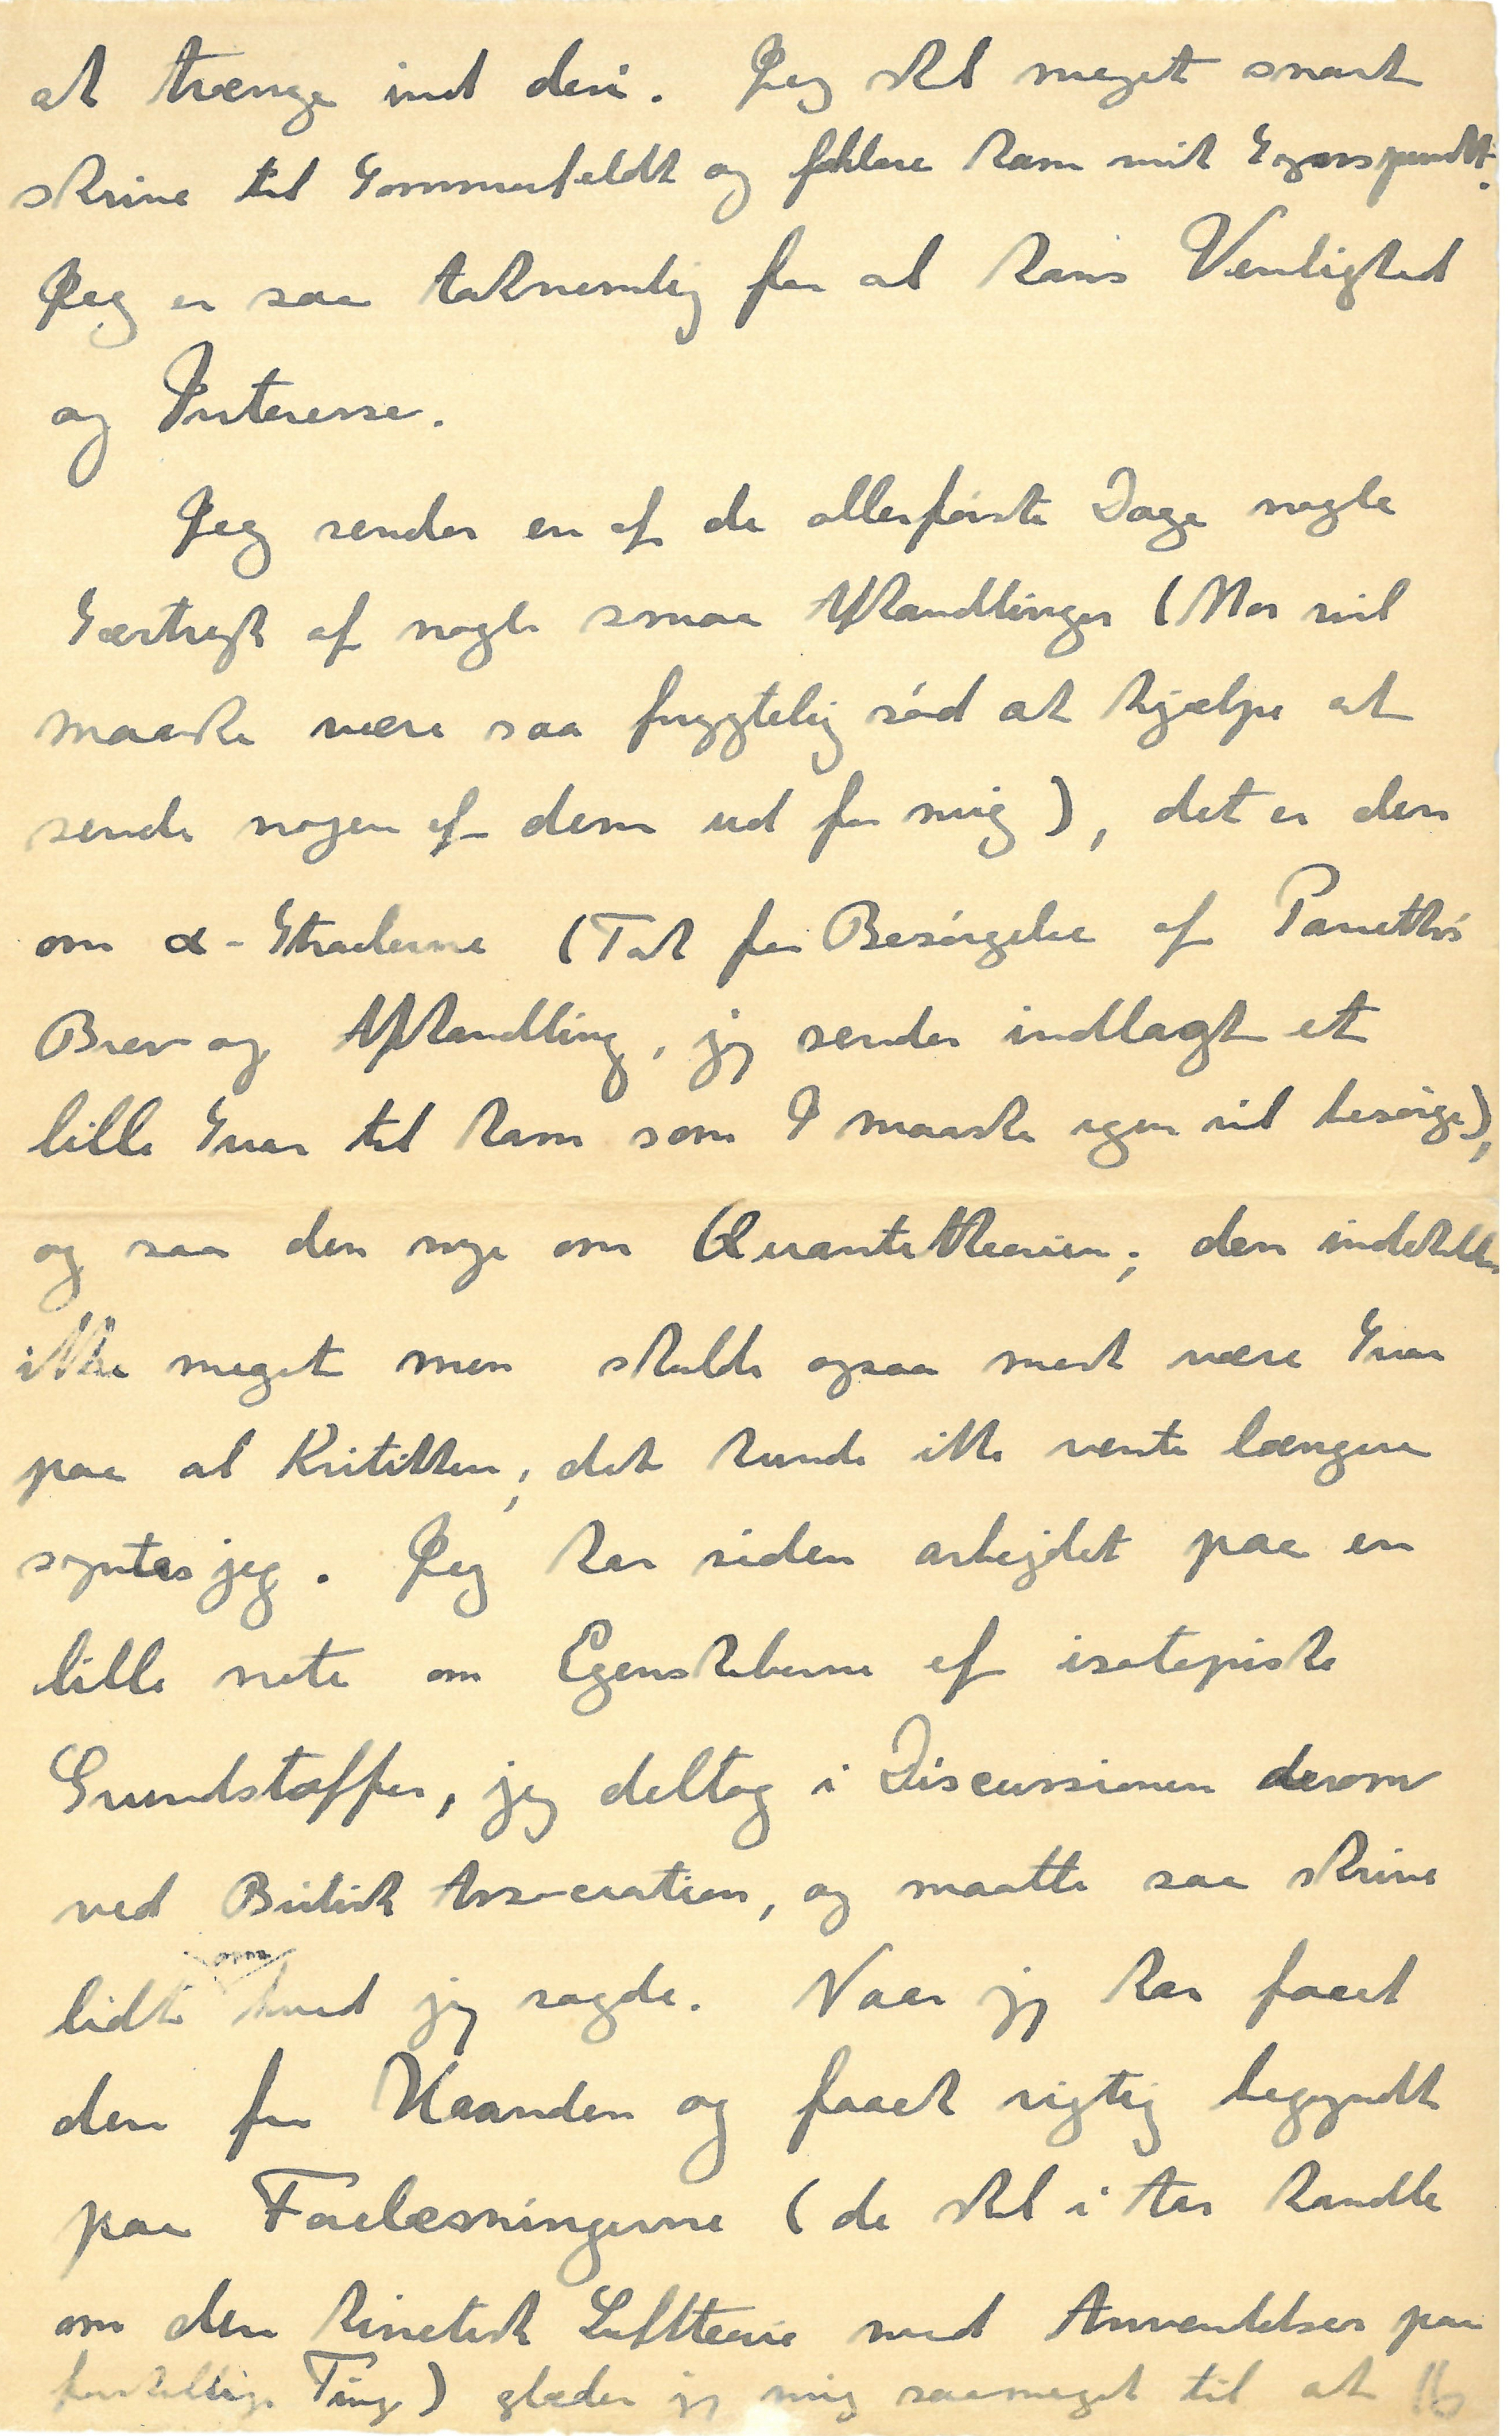 at trænge ind deri. Jeg skal meget snart
skrive til Sommerfeldt og forklare ham mit Synspundkt.
Jeg er saa taknemlig for al hans Venlighed
og Interesse.
Jeg sender en af de allerførste Dage nogle
Særtryk af nogle smaa Afhandlinger (Mor vil
maaske være saa frygtelig sød at hjælpe at
sende nogen af dem ud for mig), det er den
om α-Straalerne (Tak for Besørgelse af Paneths
Brev og Afhandling, jeg sender indlagt et
lille Svar til ham som I maaske igen vil besørge),
og saa den nye om Quanteteorien; den indeholder
ikke meget men skulde ogsaa mest være Svar
paa al Kritikken; det kunde ikke vente længere
syntes jeg. Jeg har siden arbejdet paa en
lille note om Egenskaberne af isotopiske
Grundstoffer, jeg deltog i Discussionen derom
ved British Association, og maatte saa skrive
lidt om hvad jeg sagde. Naar jeg har faaet
den fra Haanden og faaet rigtig begyndt
paa Forelæsningerne (de skal i Aar handle
om den kinetisk Luftteorie med Anvendelser paa
forskellige Ting) glæder jeg mig saameget til at